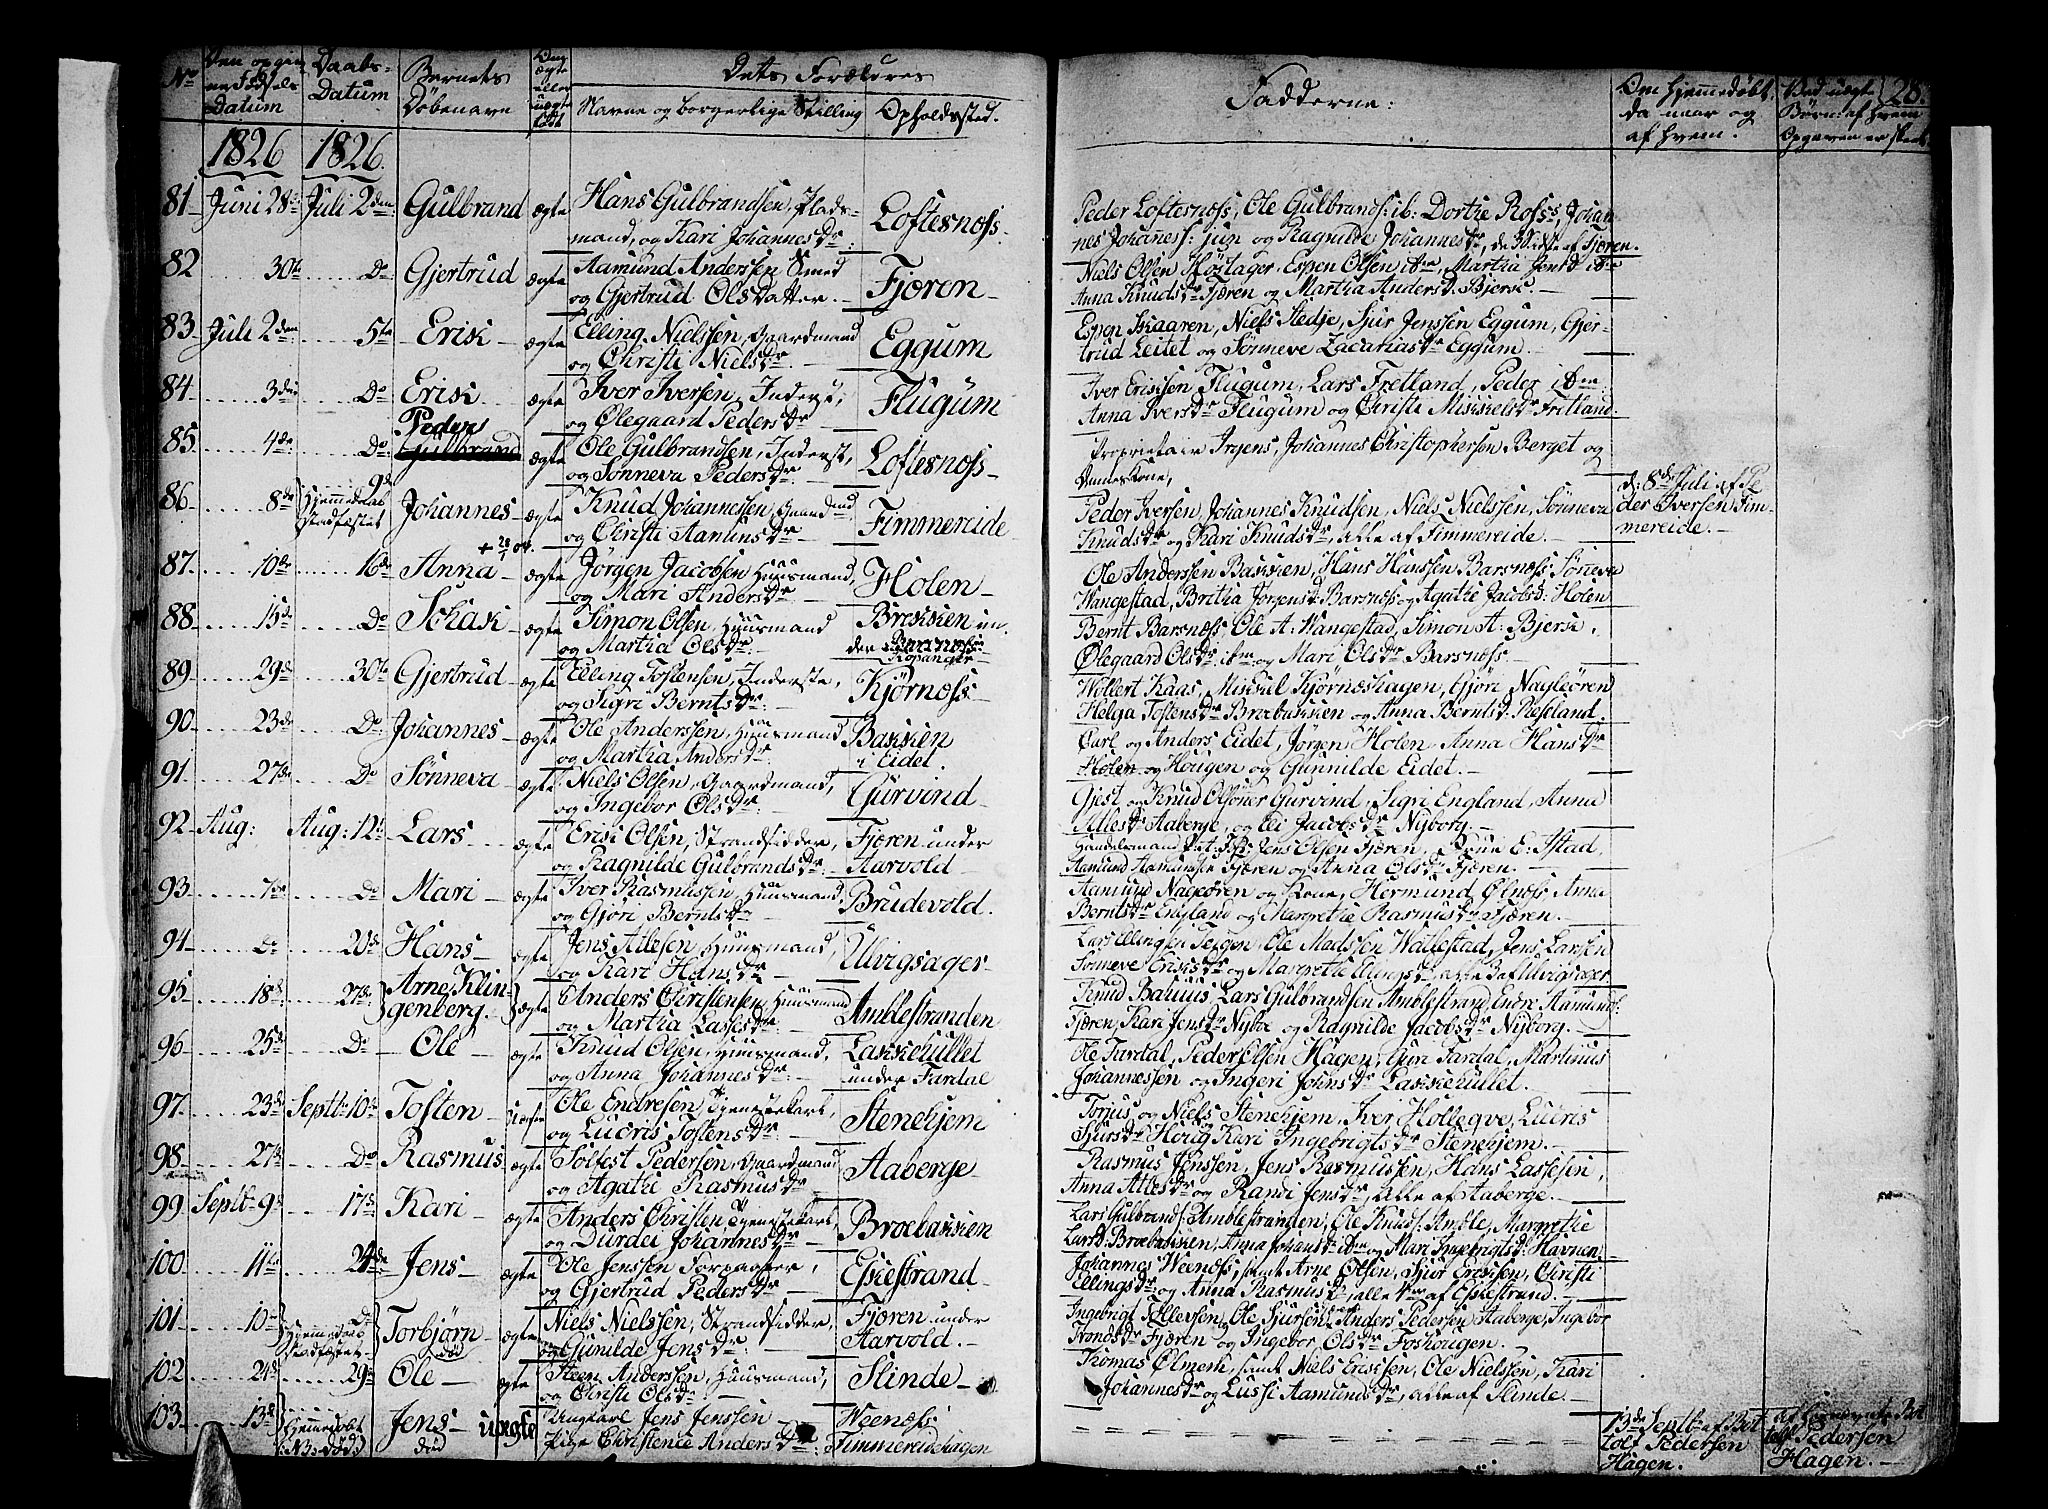 No
Den opgiv-
ne Fødsels
Datum
Daabs-
Datum
Barnets
Døbenavn
Om
ægte
eller
uægte
født
Dets Forældres
Navne og borgerlige Stilling
Opholdssted.
Fadderne:
Om hjemmedøbt,
da naar og
af hvem.
Ved uægte
Børn: af hvem
Opgaven er skeet.
28.
1826 1826.
81 Juni 28de Juli 2den Gulbrand ægte Hans Gulbrandsen, Plads-
mand, og Kari Johannesdr. Loftesnoss.
Peder Loftesnoss, Ole Gulbrands: ib. Dorthe Ross, Johan-
nes Johaness: jun og Ragnilde Johannesdr, de 3 Sidste af Fjæren.
82 30te Do Gjertrud ægte Aamund Anderssen Smed
og Gjertrud Olsdatter. Fjæren
Niels Olsen Høstager, Espen Olsen ibm, Martha Jensd. ibm
Anna Knudsdr Fjæren og Martha Andersd. Bjerk.
83 Juli 2den 5te Erik ægte Elling Nielssen, Gaardmand
og Christi Nielsdr Eggum
Espen Skaaren, Niels Stedje, Sjur Jenssen Eggum, Gjer-
trud Leitet og Sønneve Zacariasdr Eggum.
84 3die Do Erik ægte Iver Iversen, Inderst,
og Ølegaard Pedersdr Flugum
Iver Eriksen Flugum, Lars Fretland, Peder ibm
Anna Iversdr Flugum og Christi Mikkelsdr Fretland.
85 4de Do Peder Gulbrand ægte Ole Gulbrandsen, Inderst,
og Sønneva Pedersdr Loftesnoss
Proprietair Irgens, Johannes Christophersen Berget og
dennes Kone,
86 8de 9de Hjemmedaab
stadfæstet Johannes ægte Knud Johannessen, Gaardmd
og Christi Aamunsdr Fimmereide
Peder Iversen, Johannes Knudsen, Niels Nielssen, Sønneva
Knudsdr og Kari Knudsdr, alle af Fimmereide.
d: 8de Juli af Pe-
der Iversen Fim-
mereide.
87 10de 16de Anna ægte Jørgen Jacobsen Huusmand,
og Mari Andersdr Holen
Ole Anderssen Bakken, Hans Hanssen Barsnoss Sønneva
Wangestad, Britha Jørgensd: Barsnoss og Agathe Jacobsd: Holen
88 15de Do Schak ægte Simon Olsen, Huusmand
og Martha Olsdr Brekken un-
der Barsnoss
Kopanger
Bernt Barsnoss, Ole A: Wangestad, Simon A: Bjerk,
Ølegaard Olsdr ibm og Mari Olsdr Barsnoss.
89 29de 30te Gjertrud ægte Elling Tostensen, Inderste,
og Sigri Berntsdr. Kjørnoss
Wollert Kaas, Mikkel Kjørnæshagen, Gjøri Nagleøren
Helga Tostensdr Broebakken og Anna Berntsd: Pheseland.
90 23de Do Johannes ægte Ole Anderssen, Huusmand
og Martha Andersdr Bakken
i Eidet.
Carl og Anders Eidet, Jørgen Holen, Anna Hansdr
Holen og Hougen og Gunnilde Eidet.
91 27de Do Sønneva ægte Niels Olsen, Gaardmand,
og Ingebor Olsdr. Gurvind
Gjest og Knud Olsøner Gurvind, Sigri England, Anna
Atlesdr Aaberge, og Eli Jacobsdr Nyborg.
92 Aug: Aug: 12te Lars ægte Erik Olsen, Strandsidder,
og Ragnilde Gulbrandsdr Fjæren under
Aarvold
Handelsmand Jens Olsen Fjæren, E. Stad,
Aamund Aamundsen Fjæren og Anna Olsdr Fjæren.
93 7de Do Mari ægte Iver Rasmussen, Huusmand,
og Gjøri Berntsdr Brudevold.
Aamund Nagleøren og Kone, Hermund Ølnoss, Anna
Berntsdr England og Margrethe Rasmusdr Fjæren.
94 Do 20de Hans ægte Jens Atlesen, Huusmand,
og Kari Hansdr Ulvigsager
Lars Ellingsen Teigen, Ole Madssen Wallestad, Jens Larssen
Sønneve Eriksdr og Margrethe Ellingsdr, alle 3 af Ulvigsager
95 18de 27de Arne Klin-
genberg. ægte Anders Christensen, Huusmand
og Martha Lassesdr Amblestranden
Knud Balluus, Lars Gulbrandsen Amblestrand Endre Aamunds:
Fjæren, Kari Jensdr Nyboe og Ragnilde Jacobsdr Nyborg.
96 25de Do Ole ægte Knud Olsen, Huusmand,
og Anna Johannesdr Lakkehullet
under Fardal
Ole Fardal, Peder Olsen Hagen, Guri Fardal, Martinus
Johannessen og Ingeri Johnsdr Lakkehullet.
97. 23de Septbr 10de Tosten Uægte Ole Endresen, Tjenestekarl,
og Lucris Tostensdr Stenehjem
Torjus og Niels Stenehjem, Iver Hollegve, Lucris
Sjursdr Houg Kari Ingebrigtsdr Stenehjem.
98. 27de Do Rasmus ægte Solfest Pedersen, Gaardmand
og Agathe Rasmusdr Aaberge
Rasmus Jenssen, Jens Rasmussen, Hans Lassesen,
Anna Atlesdr og Randi Jensdr, alle af Aaberge.
99 Septb: 9de 17de Kari ægte Anders Christen, Tjenestekarl,
og Durdei Johannesdr Broebakken
Lars Gulbrands: Amblestranden, Ole Knuds: Amble, Margrethe
Larsd: Broebakken, Anna Johansdr ibm og Mari Ingebrigtsdr Havnen.
100 11te 24de Jens ægte Ole Jenssen Forpagter,
og Gjertrud Pedersdr Eskestrand
Johannes Weenoss, samt Arne Olsen, Sjur Eriksen, Christi
Ellingsdr og Anna Rasmusdr, alle 4re af Eskestrand.
101 10de Do Hjemmedaab
stadfæstet Torbjørn død ægte Niels Nielssen, Strandsidder,
og Gunilde Jensdr Fjæren under
Aarvold.
Ingebrigt Ellerssen, Ole Sjursøn, Anders Pedersen Aaberge, Ingebor
Trondsdr Fjæren og Ingebor Olsdr Foshougen.
102 24de 29de Ole ægte Steen Anderssen, Huusmand,
og Christi Olsdr Slinde
Thomas Ølmerh, samt Niels Erikssen, Ole Nielssen, Kari
Johannesdr og Lussi Aamundsdr, alle af Slinde.
103 13de Hjemmedøbt
NB: død Jens død uægte Ungkarl Jens Jenssen
Pige Christence Andersdr. Weenoss
Fimmereidehagen
13de Septb: af Bot-
tolf Pedersen
Hagen.
af Bot-
tolf Pedersen
Hagen.